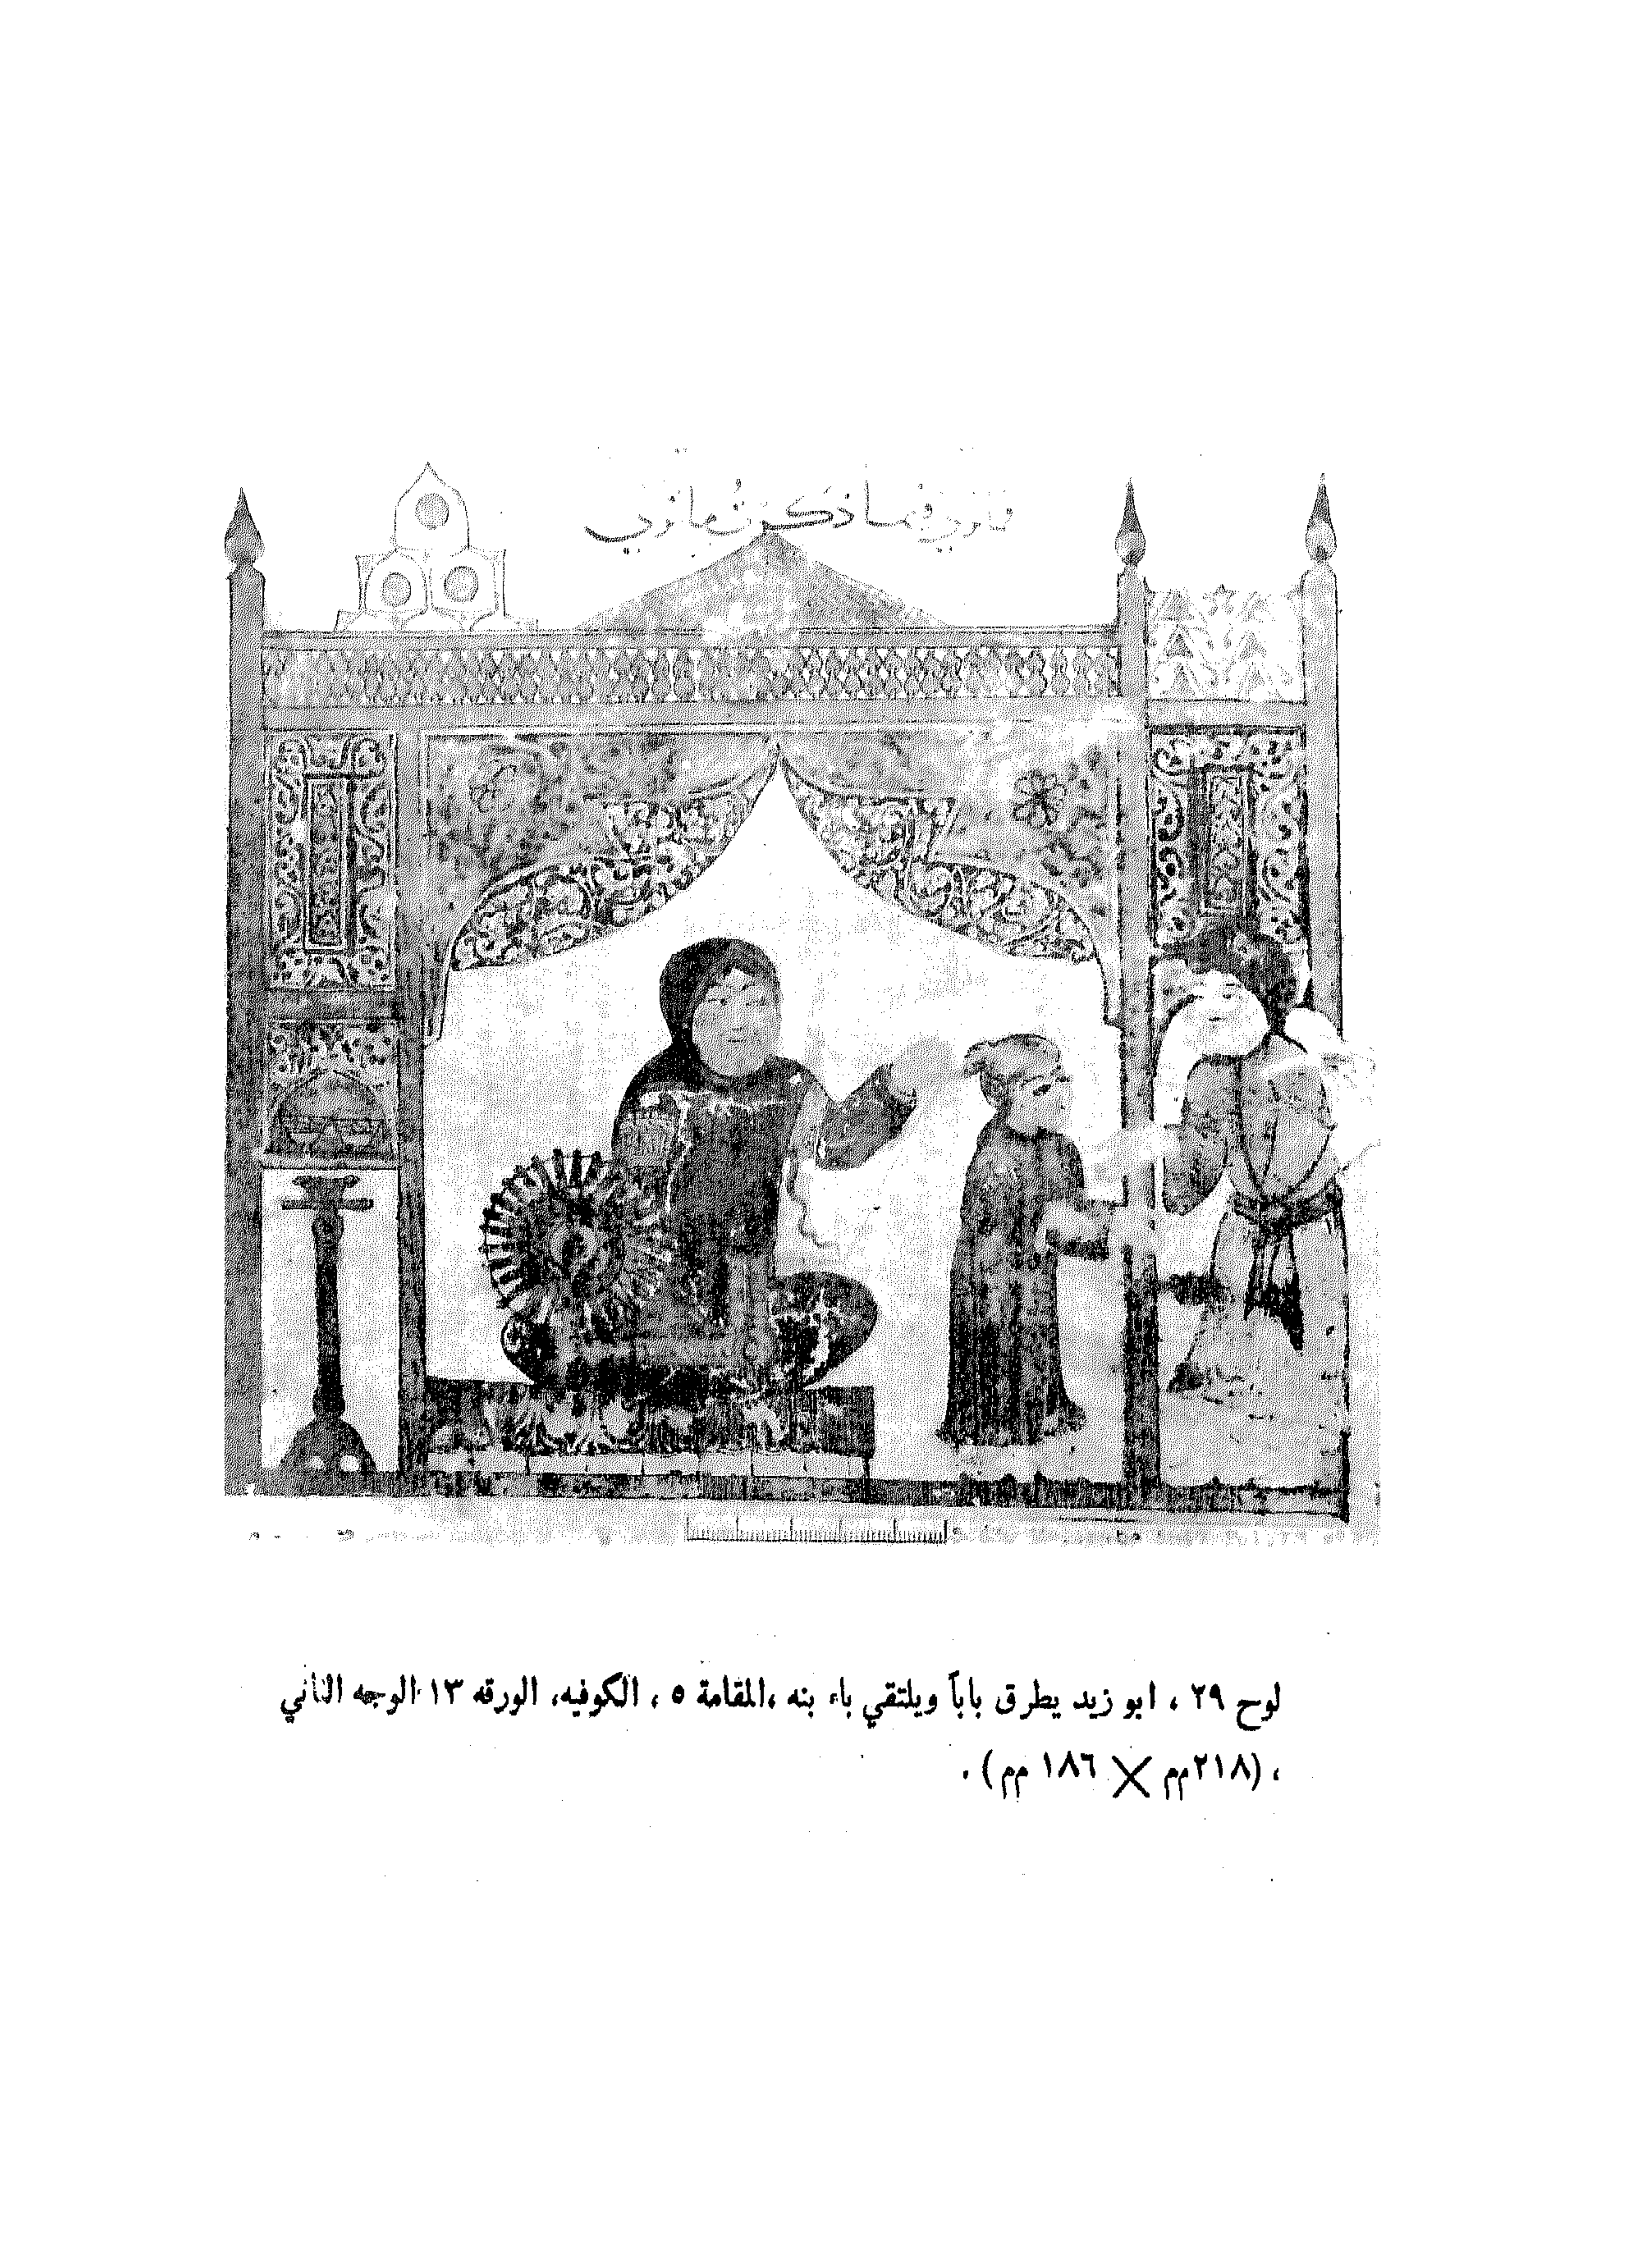 فما ذكرت
لوح ٢٩ ، ابو زيد يطرق باباً ويلتقي باء بنه ،المقامة ٥ ، الكوفيه، الورقه ١٣ الوجه الثاني
، (٢١٨مم X ١٨٦ مم) .